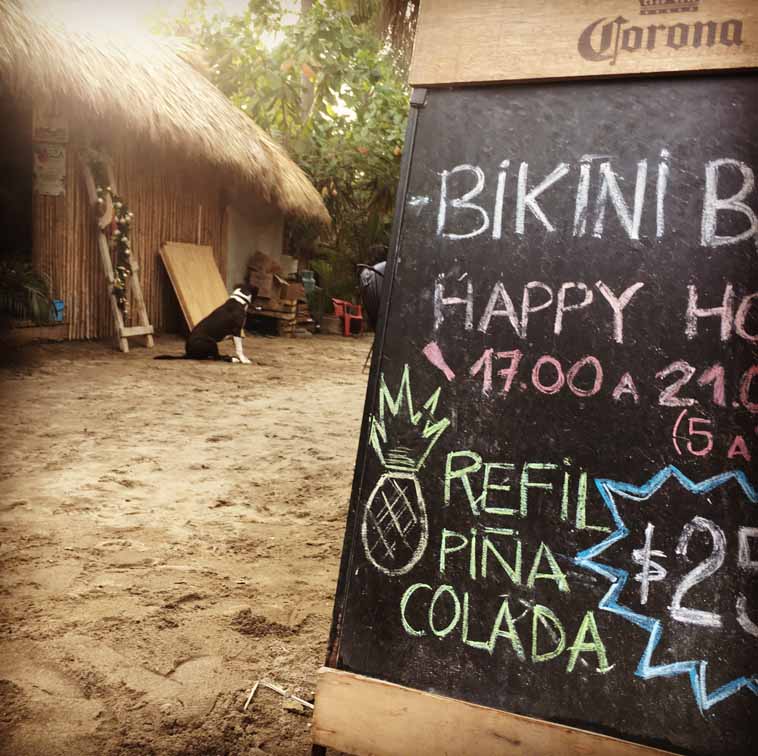 Corona
BIKINI B
HAPPY HO
17.00 A 21.0
(5 A
REFIL
PIÑA
COLADA
$25